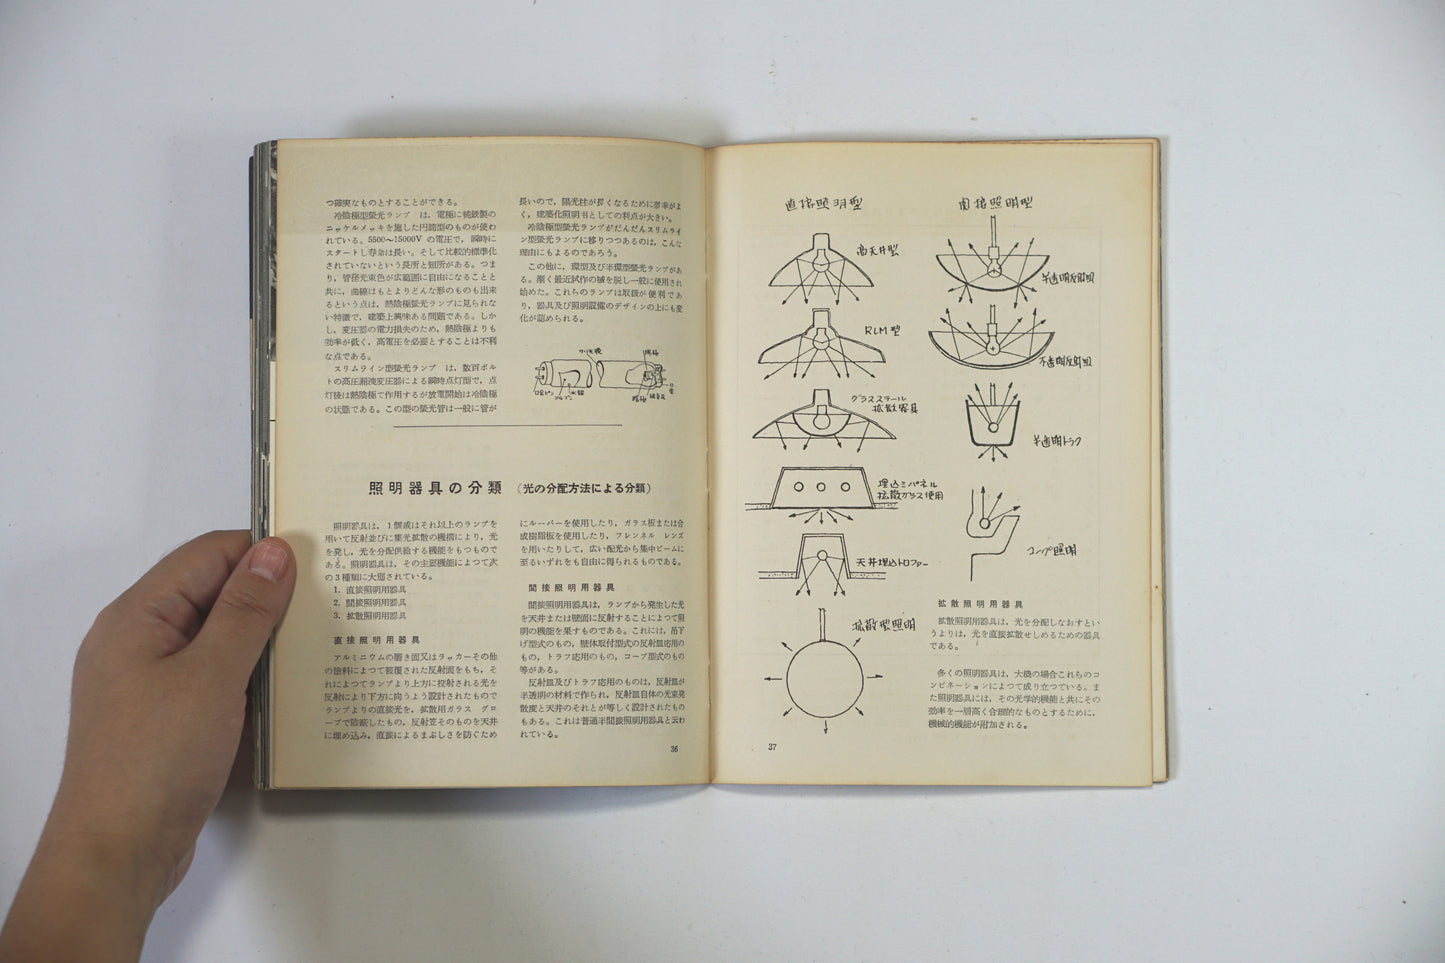 つ確実なものとすることができる。
冷陰極型螢光ランプ は、電極に純鉄製の
ニッケルメッキを施した円筒型のものが使わ
れている。5500〜15000V の電圧で，瞬時に
スタートし寿命は長い。そして比較的標準化
されていないという長所と短所がある。つま
り，管径光束色が広範囲に自由になることと
共に，曲線はもとよりどんな形のものも出来
るという点は，熱陰極螢光ランプに見られな
い特徴で，建築上興味ある問題である。しか
し，変圧器の電力損失のため，熱陰極よりも
効率が低く，高電圧を必要とすることは不利
な点である。
スリムライン型螢光ランプ は，数百ボル
トの高圧漏洩変圧器による瞬時点灯型で，点
灯後は熱陰極で作用するが放電開始は冷陰極
の状態である。この型の螢光管は一般に管が
長いので，陽光柱が長くなるために効率がよ
く，建築化照明用としての利点が大きい。
冷陰極型螢光ランプがだんだんスリムライ
ン型螢光ランプに移りつつあるのは，こんな
理由にもよるのであろう。
この他に，環型及び半環型螢光ランプがあ
る。漸く最近試作の域を脱し一般に使用され
始めた。これらのランプは取扱が便利であ
り，器具及び照明設備のデザインの上にも変
化が認められる。
照明器具の分類 （光の分配方法による分類）
照明器具は，1個或はそれ以上のランプを
用いて反射並びに集光拡散の機構により，光
を発し，光を分配供給する機能をもつもので
ある。照明器具は，その主要機能によつて次
の3種類に大別されている。
1. 直接照明用器具
2. 間接照明用器具
3. 拡散照明用器具
直接照明用器具
アルミニウムの磨き面又はラッカーその他
の塗料によつて被覆された反射面をもち，そ
れによつてランプより上方に投射される光を
反射により下方に向うよう設計されたもので
ランプよりの直接光を，拡散用ガラス グロ
ーブで陰蔽したもの，反射笠そのものを天井
に埋め込み，直接によるまぶしさを防ぐため
にルーバーを使用したり，ガラス板または合
成樹脂板を使用したり，フレンネル レンズ
を用いたりして，広い配光から集中ビームに
至るいずれをも自由に得られるものである。
間接照明用器具
間接照明用器具は，ランプから発生した光
を天井または壁面に反射することによつて照
明の機能を果すものである。これには，吊下
げ型式のもの，壁体取付型式の反射皿応用の
もの，トラフ応用のもの，コーブ型式のもの
等がある。
反射皿及びトラフ応用のものは，反射皿が
半透明の材料で作られ，反射皿自体の光束発
散度と天井のそれとが等しく設計されたもの
もある。これは普通半間接照明用器具と云わ
れている。
36
直接照明型
高天井型
RLM型
グラススチール
拡散器具
埋込ミパネル
拡散ガラス使用
天井埋込トロファー
拡散型照明
間接照明型
半透明反射皿
不透明反射皿
半透明トラフ
コーブ照明
拡散照明用器具
拡散照明用器具は，光を分配しなおすとい
うよりは，光を直接拡散せしめるための器具
である。
多くの照明器具は，大概の場合これらのコ
ンビネーションによつて成り立つている。ま
た照明器具には，その光学的機能と共にその
効率を一層高く合理的なものとするために，
機械的機能が附加される。
37